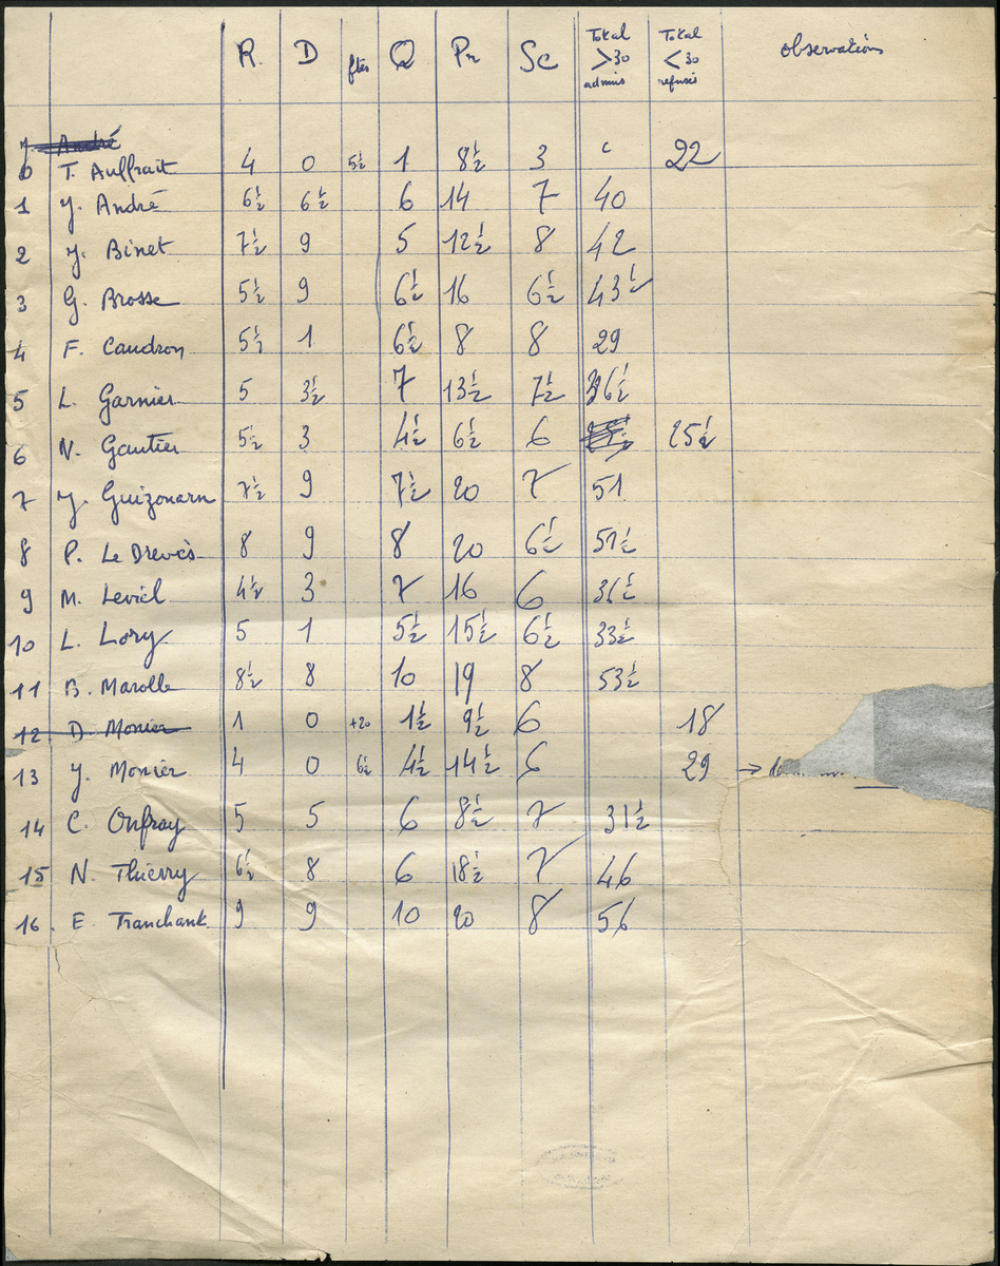 R. D ftes Q Pr Sc Total >30 admis Total <30 refusés observations
1 André
0 T. Auffrait 4 0 5½ 1 8½ 3 22
1 Y. André 6½ 6½ 6 14 7 40
2 Y. Binet 7½ 9 5 12½ 8 42
3 G. Brosse 5½ 9 6½ 16 6½ 43½
4 F. Caudron 5½ 1 6½ 8 8 29
5 L. Garnier 5 3½ 7 13½ 7½ 36½
6 N. Gautier 5½ 3 4½ 6½ 6 25½
7 Y. Guizouarn 7½ 9 7½ 20 7 51
8 P. Le Drevès 8 9 8 20 6½ 51½
9 M. Leviel 4½ 3 7 16 6 36½
10 L. Lory 5 1 5½ 15½ 6½ 33½
11 B. Marolle 8½ 8 10 19 8 53½
12 D. Monier 1 0 +20 1½ 9½ 6 18
13 Y. Monier 4 0 6½ 4½ 14½ 6 29 →
14 C. Onfray 5 5 6 8½ 7 31½
15 N. Thierry 6½ 8 6 18½ 7 46
16. E Tranchant 9 9 10 20 8 56